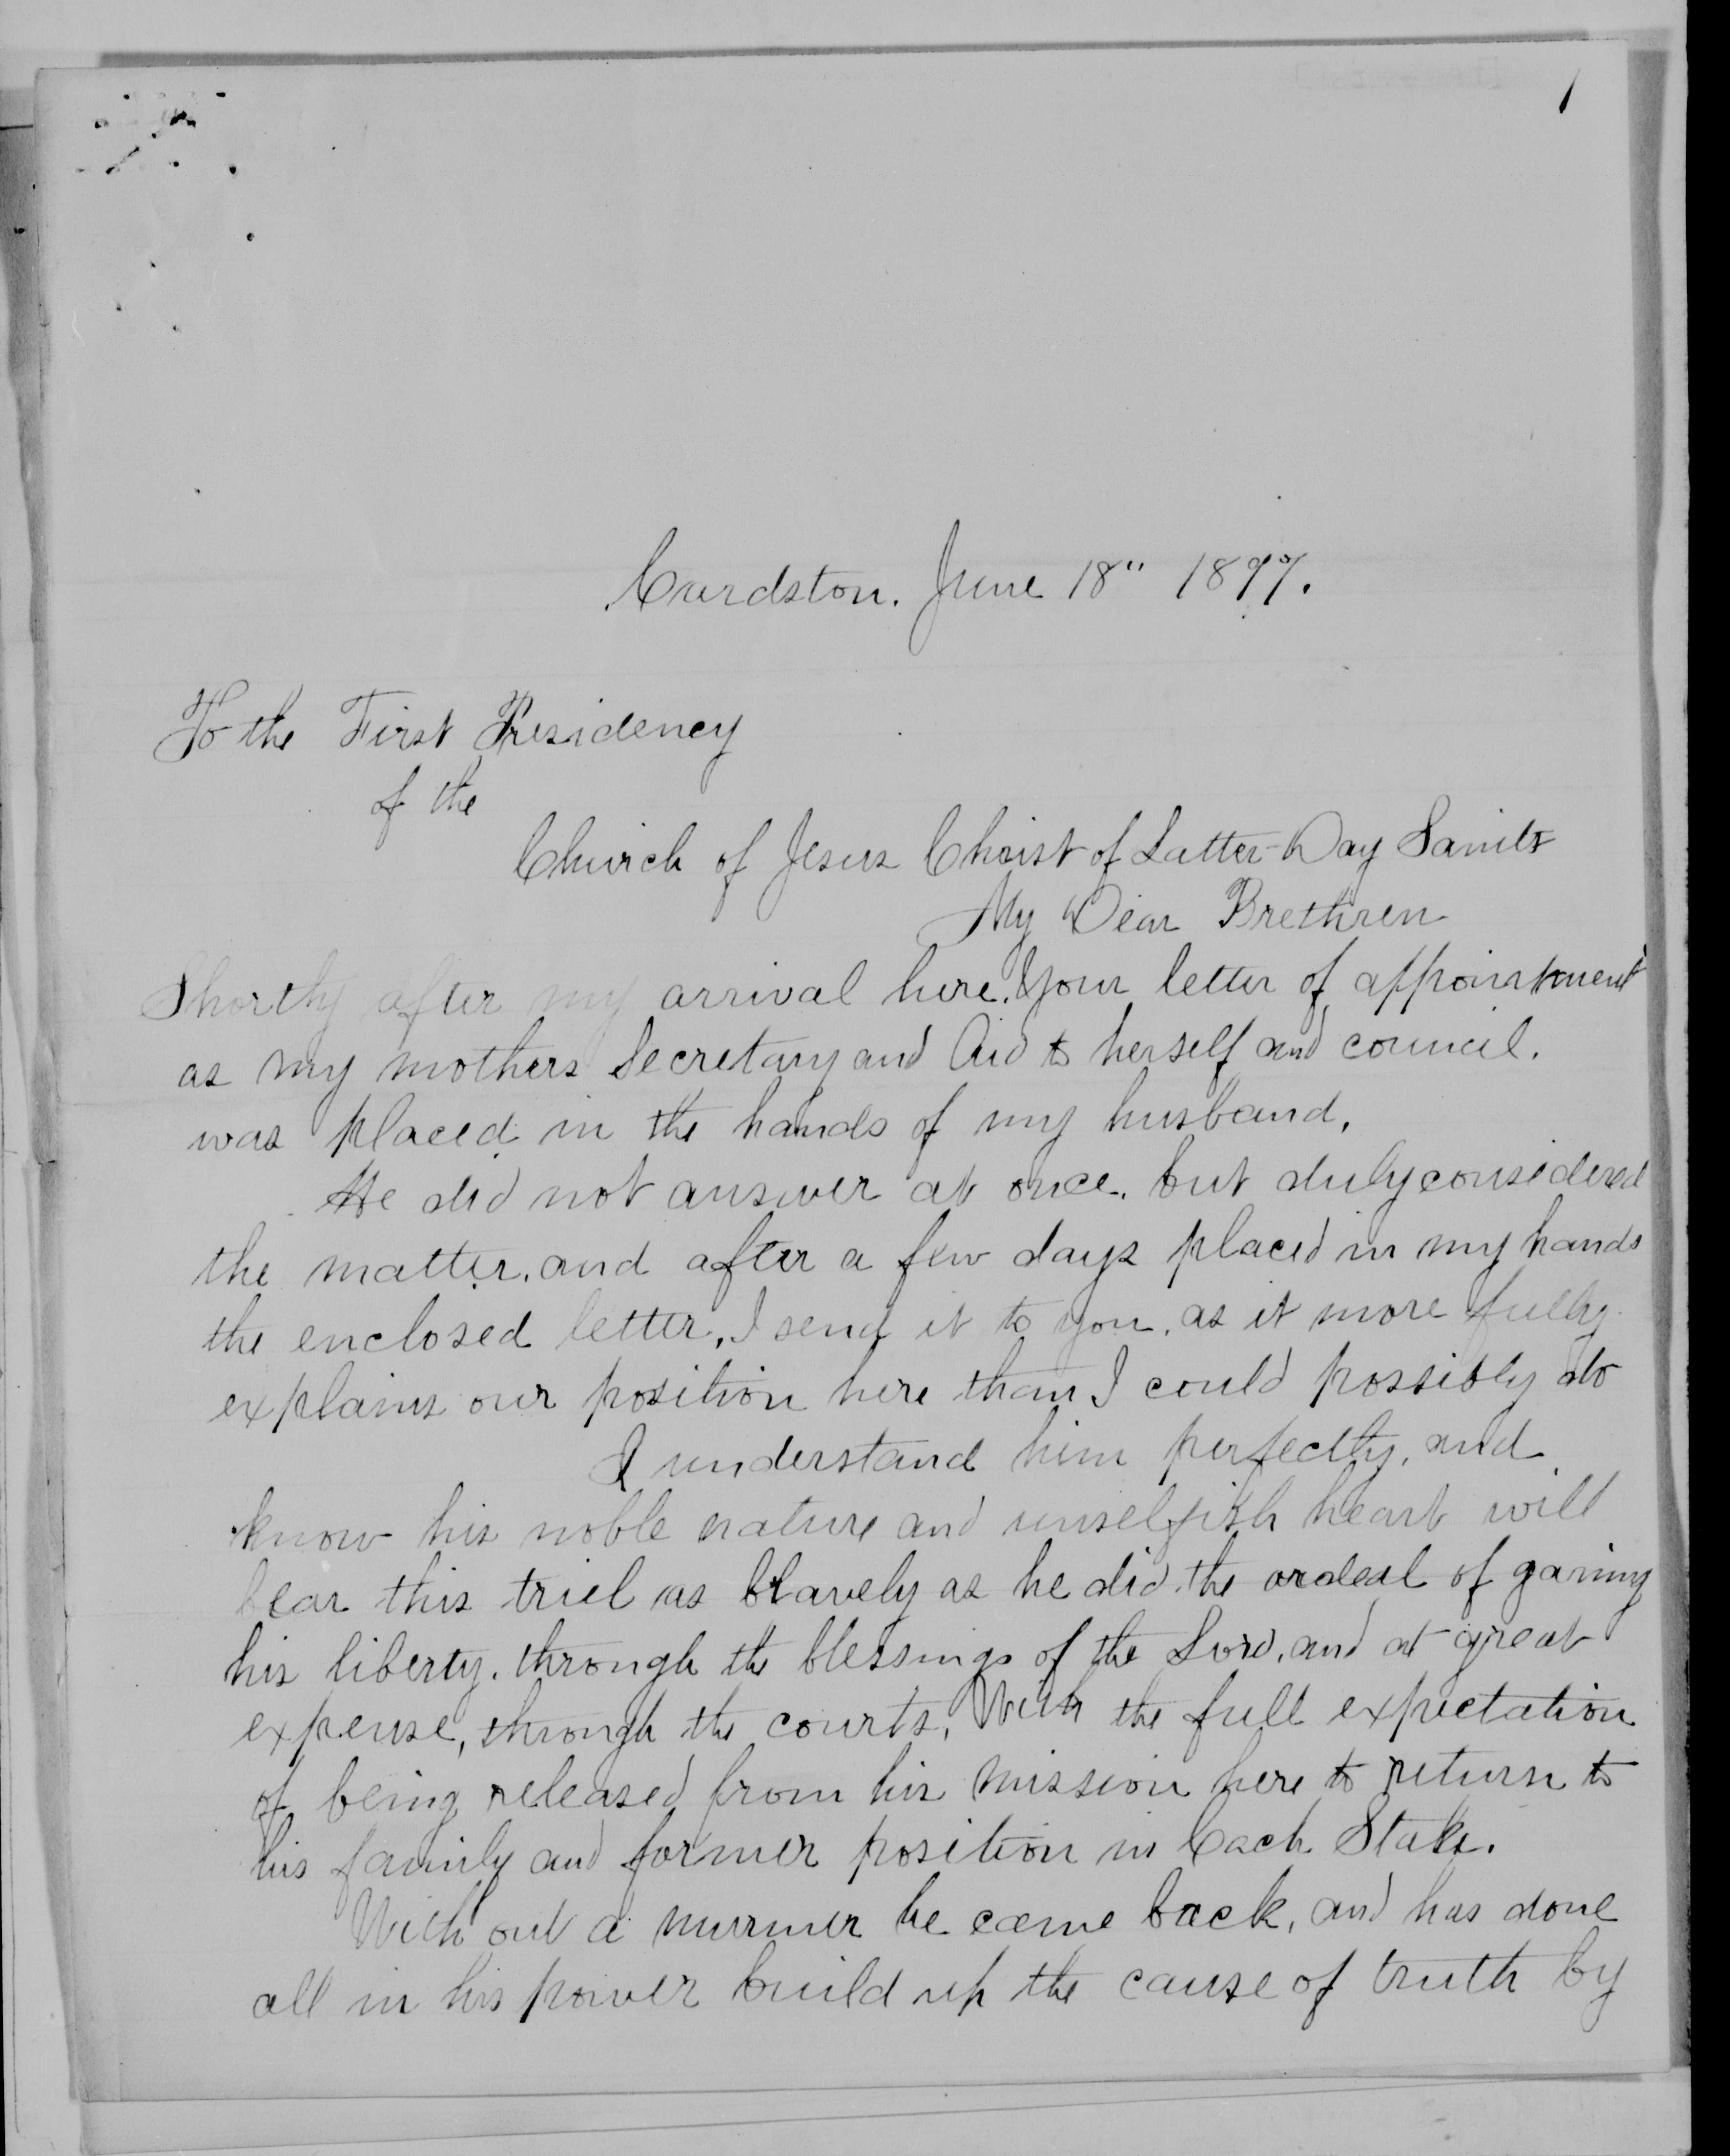 1
Cardston. June 18" 1897.
To the First Presidency
of the
Church of Jesus Christ of Latter-Day Saints
My Dear Brethren
Shortly after my arrival here. Your letter of appointment
as my mothers Secretary and Aid to herself and council.
was placed in the hands of my husband.
He did not answer at once. but duly considered
the matter. and after a few days placed in my hands
the enclosed letter, I send it to you. as it more fully
explains our position here than I could possibly do
I understand him perfectly, and
know his noble nature and unselfish heart will
bear this triel as bravely as he did the ordeal of gaining
his liberty. through the blessings of the Lord. and at great
expense, through the courts, With the full expectation
of being released from his mission here to return to
his family and former position in Cach Stake.
With out a murmer he came back, and has done
all in his power build up the cause of truth by